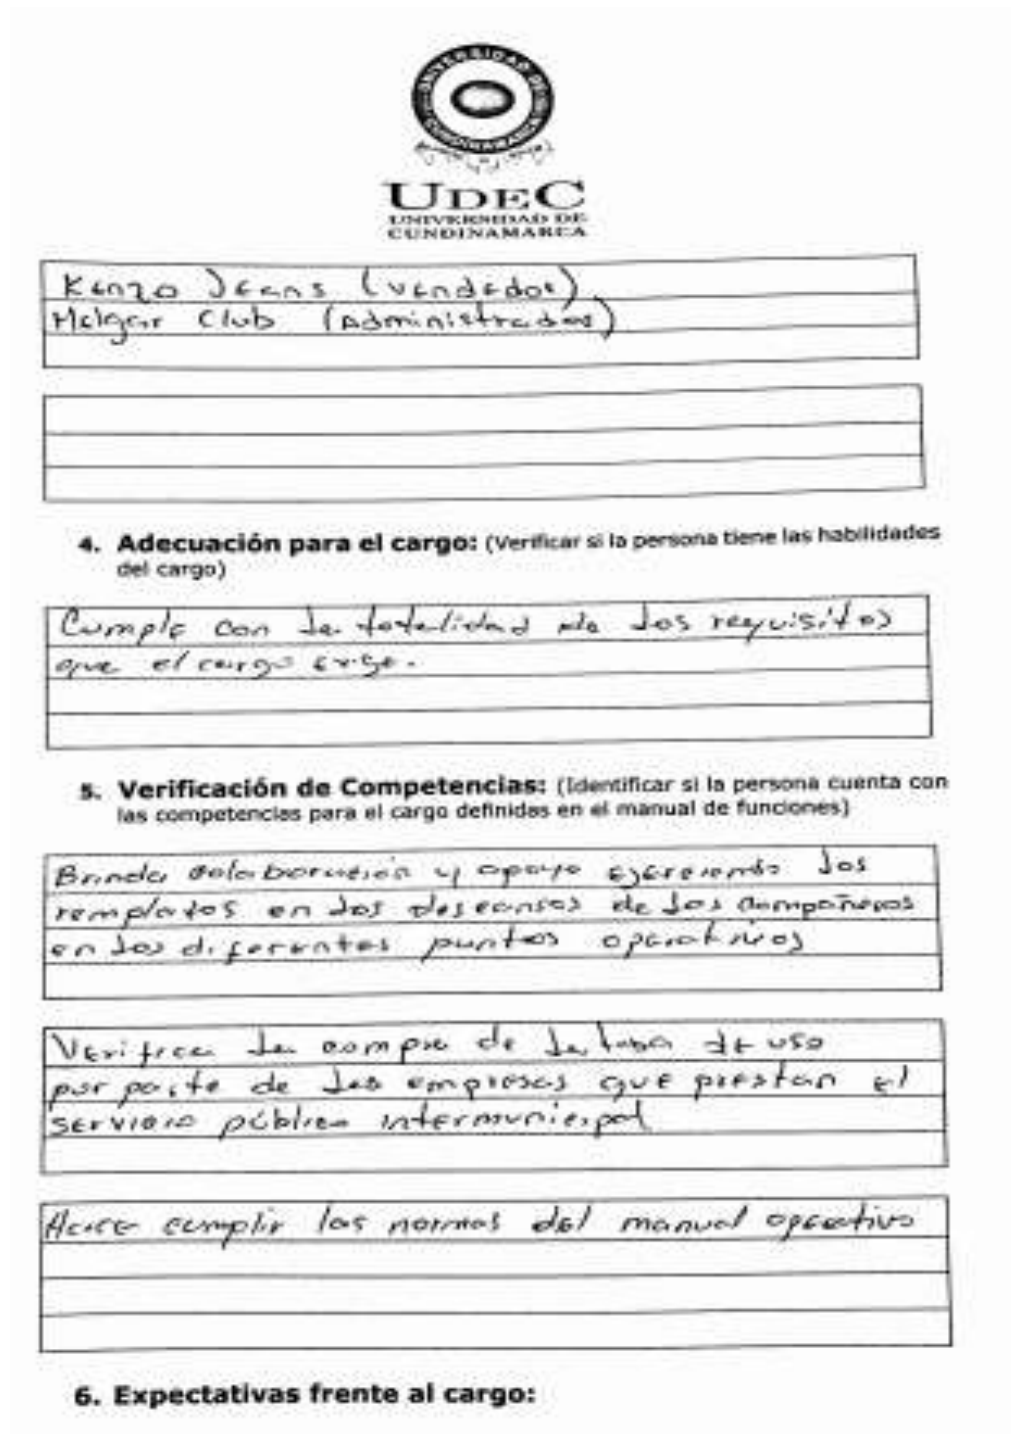 UNIVERSIDAD DE CUNDINAMARCA
UDEC
UNIVERSIDAD DE
CUNDINAMARCA
Kenzo Jeans (vendedor)
Melgar Club (Administrador)
4. Adecuación para el cargo: (Verificar si la persona tiene las habilidades
del cargo)
Cumple con la totalidad de los requisitos
que el cargo exige.
5. Verificación de Competencias: (Identificar si la persona cuenta con
las competencias para el cargo definidas en el manual de funciones)
Brinda colaboración y apoyo ejerciendo los
remplazos en los descansos de los compañeros
en los diferentes puntos operativos
Verifica la compra de la tasa de uso
por parte de las empresas que prestan el
servicio público intermunicipal
Hace cumplir las normas del manual operativo
6. Expectativas frente al cargo: